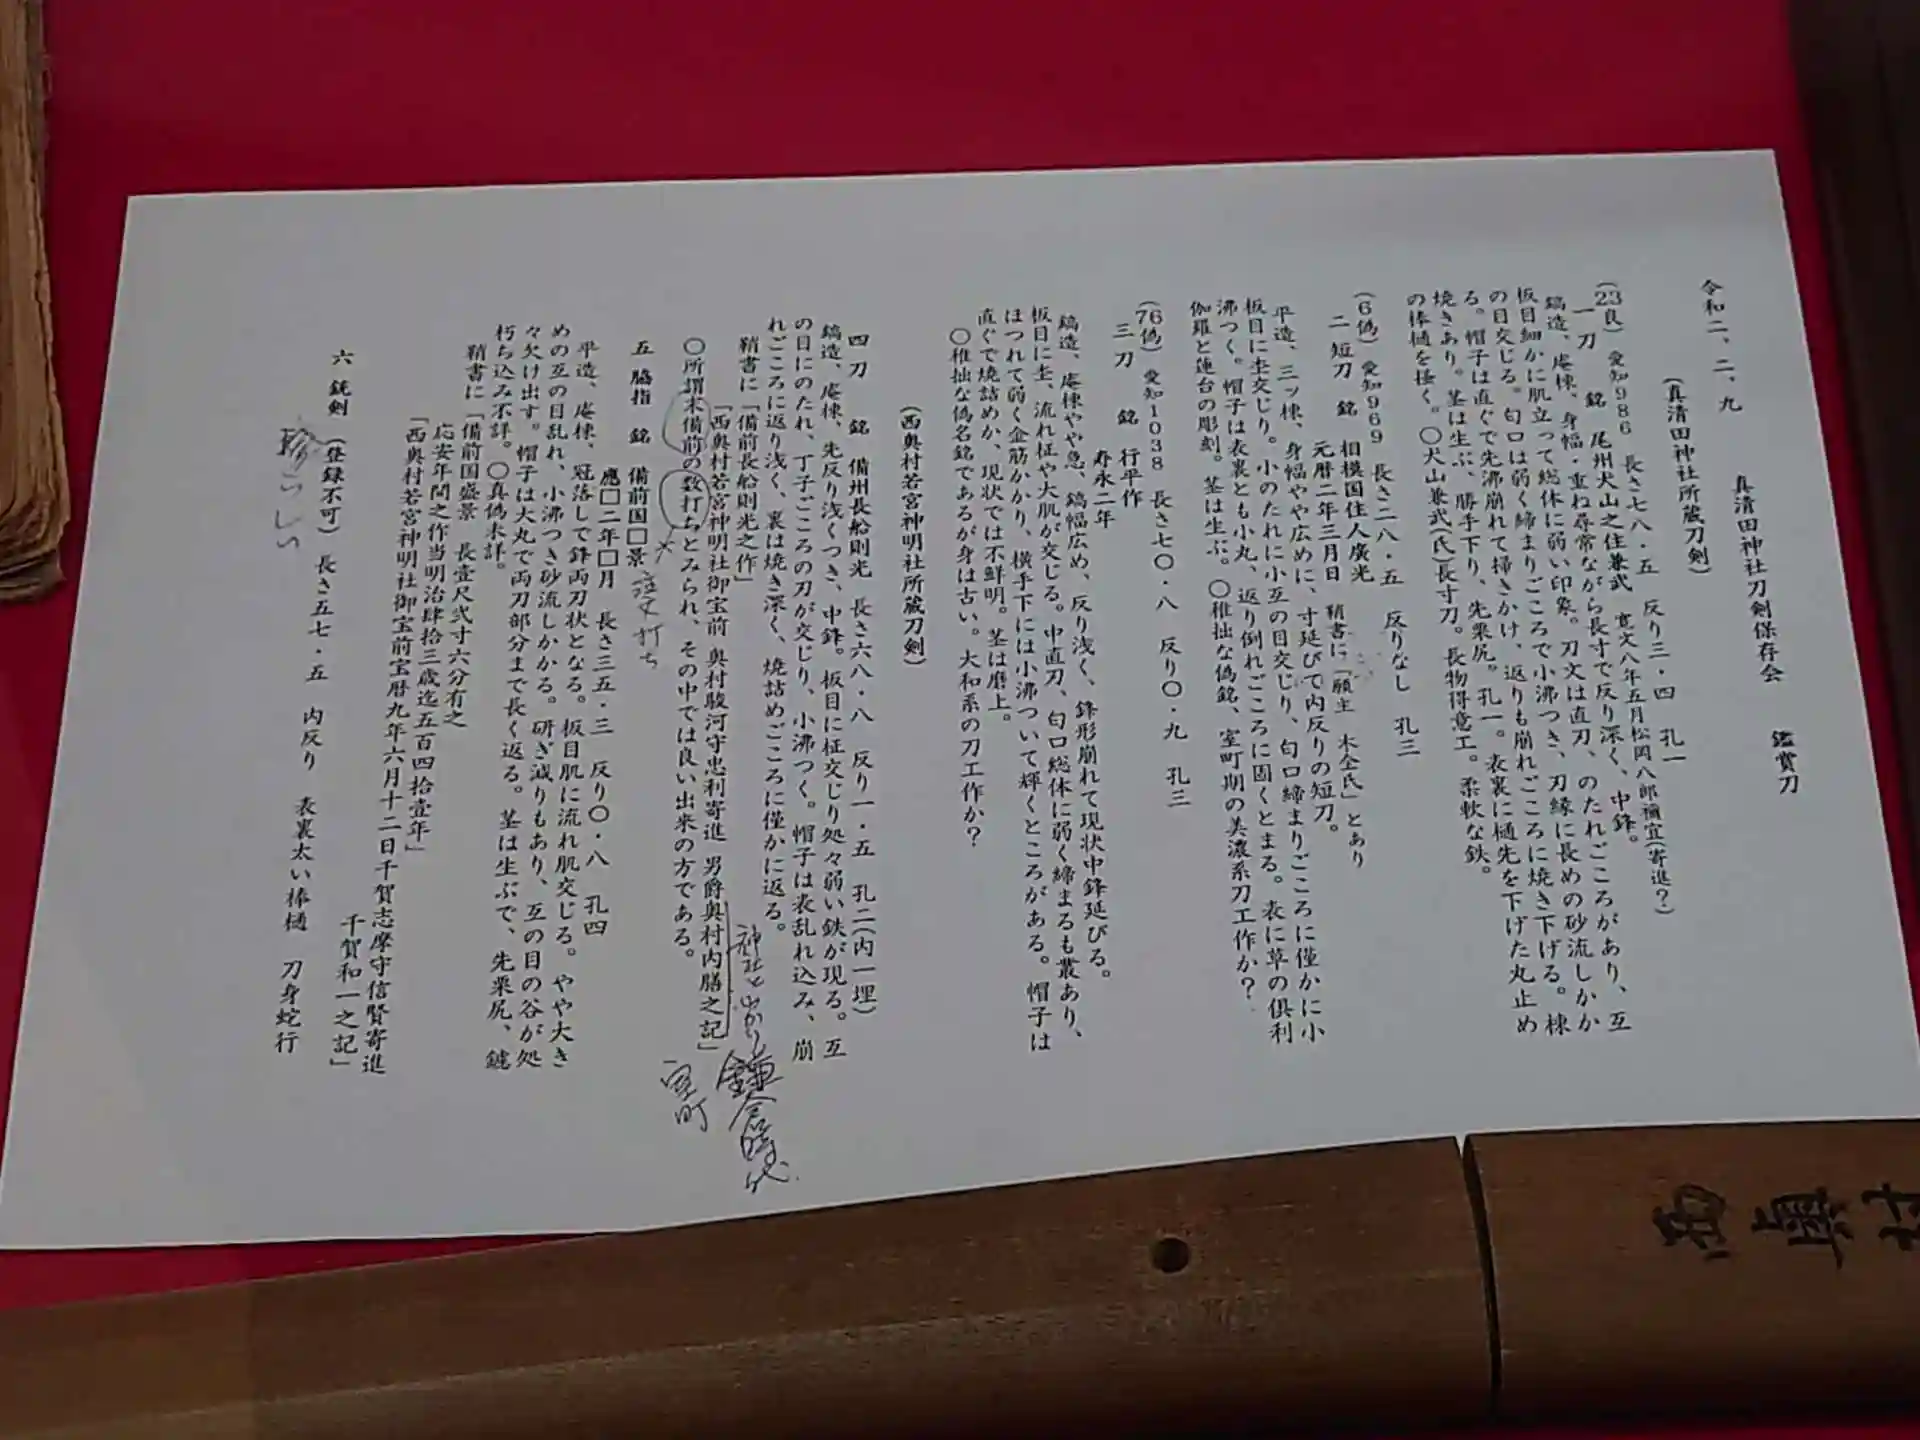 令和二、二、九
真清田神社刀剣保存会 鑑賞刀
(真清田神社所蔵刀剣)
(23良) 愛知986 長さ七八・五 反り三・四 孔一
一刀 銘 尾州犬山之住兼武 寛文八年五月松岡八郎禰宜(寄進?)
鎬造、庵棟、身幅・重ね尋常ながら長寸で反り深く、中鋒。
板目細かに肌立って総体に弱い印象。刀文は直刀、のたれごころがあり、互
の目交じる。匂口は弱く締まりごころで小沸つき、刃縁に長めの砂流しかか
る。帽子は直ぐで先沸崩れて掃きかけ、返りも崩れごころに焼き下げる。棟
焼きあり。茎は生ぶ、勝手下り、先栗尻。孔一。表裏に樋先を下げた丸止め
の棒樋を掻く。〇犬山兼武(氏)長寸刀。長物得意工。柔軟な鉄。
(6偽) 愛知969 長さ二八・五 反りなし 孔三
二 短刀 銘 相模国住人廣光
元暦二年三月日 鞘書に「願主 木全氏」とあり
平造、三ッ棟、身幅やや広めに、寸延びて内反りの短刀。
板目に杢交じり。小のたれに小互の目交じり、匂口締まりごころに僅かに小
沸つく。帽子は表裏とも小丸、返り倒れごころに固くとまる。表に草の倶利
伽羅と蓮台の彫刻。茎は生ぶ。〇稚拙な偽銘、室町期の美濃系刀工作か?
(76偽) 愛知1038 長さ七〇・八 反り〇・九 孔三
三 刀 銘 行平作
寿永二年
鎬造、庵棟やや急、鎬幅広め、反り浅く、鋒形崩れて現状中鋒延びる。
板目に杢、流れ柾や大肌が交じる。中直刀、匂口総体に弱く締まるも叢あり、
ほつれて弱く金筋かかり、横手下には小沸ついて輝くところがある。帽子は
直ぐで焼詰めか、現状では不鮮明。茎は磨上。
〇稚拙な偽名銘であるが身は古い。大和系の刀工作か?
(西奥村若宮神明社所蔵刀剣)
四 刀 銘 備州長船則光 長さ六八・八 反り一・五 孔二(内一埋)
鎬造、庵棟、先反り浅くつき、中鋒。板目に柾交じり処々弱い鉄が現る。互
の目にのたれ、丁子ごころの刀が交じり、小沸つく。帽子は表乱れ込み、崩
れごころに返り浅く、裏は焼き深く、焼詰めごころに僅かに返る。
鞘書に「備前長船則光之作」
「西奥村若宮神明社御宝前 奥村駿河守忠利寄進 男爵奥村内膳之記」
〇所謂末備前の数打ちとみられ、その中では良い出来の方である。
神社
鎌倉時代
室町
注文打ち
五 脇指 銘 備前国□景
應□二年□月 長さ三五・三 反り〇・八 孔四
平造、庵棟、冠落しで鋒両刀状となる。板目肌に流れ肌交じる。やや大き
めの互の目乱れ、小沸つき砂流しかかる。研ぎ減りもあり、互の目の谷が処
々欠け出す。帽子は大丸で両刀部分まで長く返る。茎は生ぶで、先栗尻、鑢
朽ち込み不詳。〇真偽未詳。
鞘書に「備前国盛景 長壹尺弐寸六分有之
応安年間之作当明治肆拾三歳迄五百四拾壹年」
「西奥村若宮神明社御宝前宝暦九年六月十二日千賀志摩守信賢寄進
千賀和一之記」
六 銑剣 (登録不可) 長さ五七・五 内反り 表裏太い棒樋 刀身蛇行
西奥村